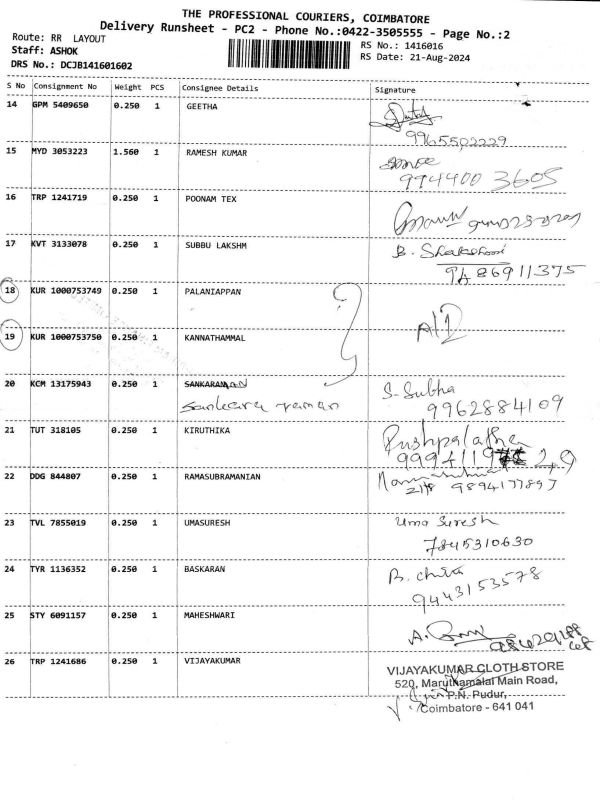 THE PROFESSIONAL COURIERS, COIMBATORE
Delivery Runsheet - PC2 - Phone No.:0422-3505555 - Page No.:2
Route: RR LAYOUT
Staff: ASHOK
DRS No.: DCJB141601602
RS No.: 1416016
RS Date: 21-Aug-2024
S No Consignment No Weight PCS Consignee Details Signature
14 GPM 5409650 0.250 1 GEETHA
9965502229
15 MYD 3053223 1.560 1 RAMESH KUMAR
994400 3605
16 TRP 1241719 0.250 1 POONAM TEX
17 KVT 3133078 0.250 1 SUBBU LAKSHM
B.
86911375
18 KUR 1000753749 0.250 1 PALANIAPPAN
19 KUR 1000753750 0.250 1 KANNATHAMMAL
20 KCM 13175943 0.250 1 SANKARAMAN
Sankara raman
S. Subha
9962884109
21 TUT 318105 0.250 1 KIRUTHIKA
Pushpalatha
22 DDG 844807 0.250 1 RAMASUBRAMANIAN
9894177897
23 TVL 7855019 0.250 1 UMASURESH
Uma Suresh
7845310630
24 TYR 1136352 0.250 1 BASKARAN
B. chitra
9443153578
25 STY 6091157 0.250 1 MAHESHWARI
A.
26 TRP 1241686 0.250 1 VIJAYAKUMAR
VIJAYAKUMAR CLOTH STORE
520, Maruthamalai Main Road,
P.N. Pudur,
Coimbatore - 641 041